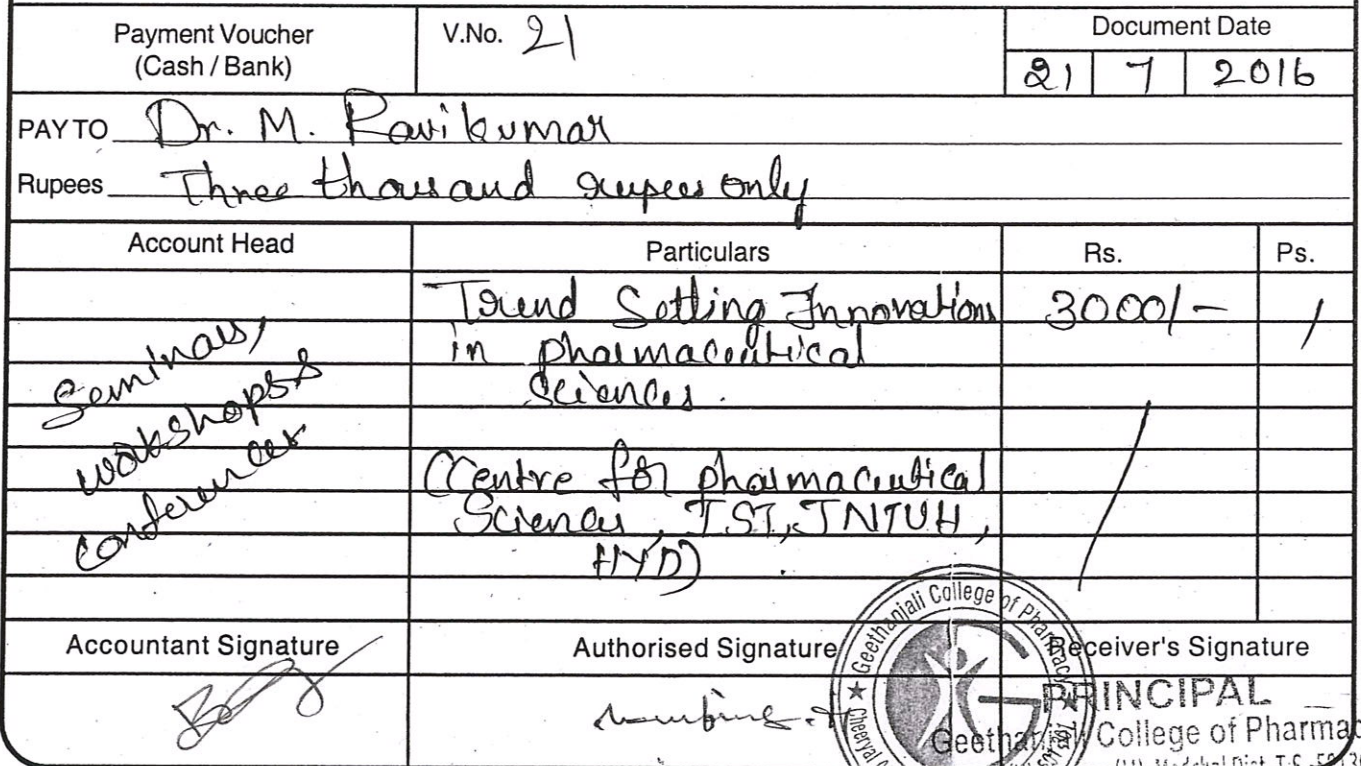 Payment Voucher
(Cash / Bank)
V.No. 21
Document Date
21 7 2016
PAY TO Dr. M. Ravikumar
Rupees Three thousand rupees only
Account Head Particulars Rs. Ps.
Seminars,
workshops &
conferences
Trend Setting Innovations
in pharmaceutical
Sciences.
3000/-
(Centre for pharmaceutical
Sciences, IST, JNTUH,
HYD)
Accountant Signature Authorised Signature Receiver's Signature
Geethanjali College of Pharmacy
Cheeryal
PRINCIPAL
Geethanjali College of Pharmac